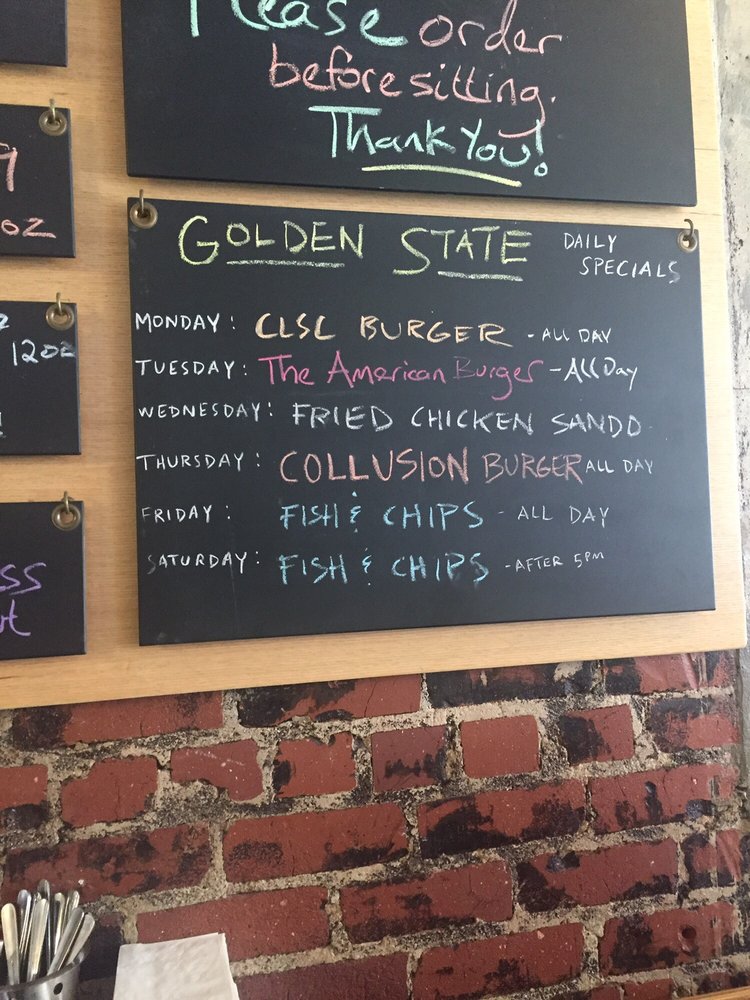 Please order
before sitting.
Thank You!
GOLDEN STATE DAILY
SPECIALS
MONDAY: CLSC BURGER - ALL DAY
TUESDAY: The American Burger - All Day
WEDNESDAY: FRIED CHICKEN SANDO
THURSDAY: COLLUSION BURGER ALL DAY
FRIDAY: FISH & CHIPS - ALL DAY
SATURDAY: FISH & CHIPS - AFTER 5PM
9
OZ
12oz